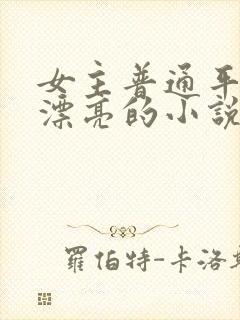 女主普通平
漂亮的小說
羅伯特-卡洛斯